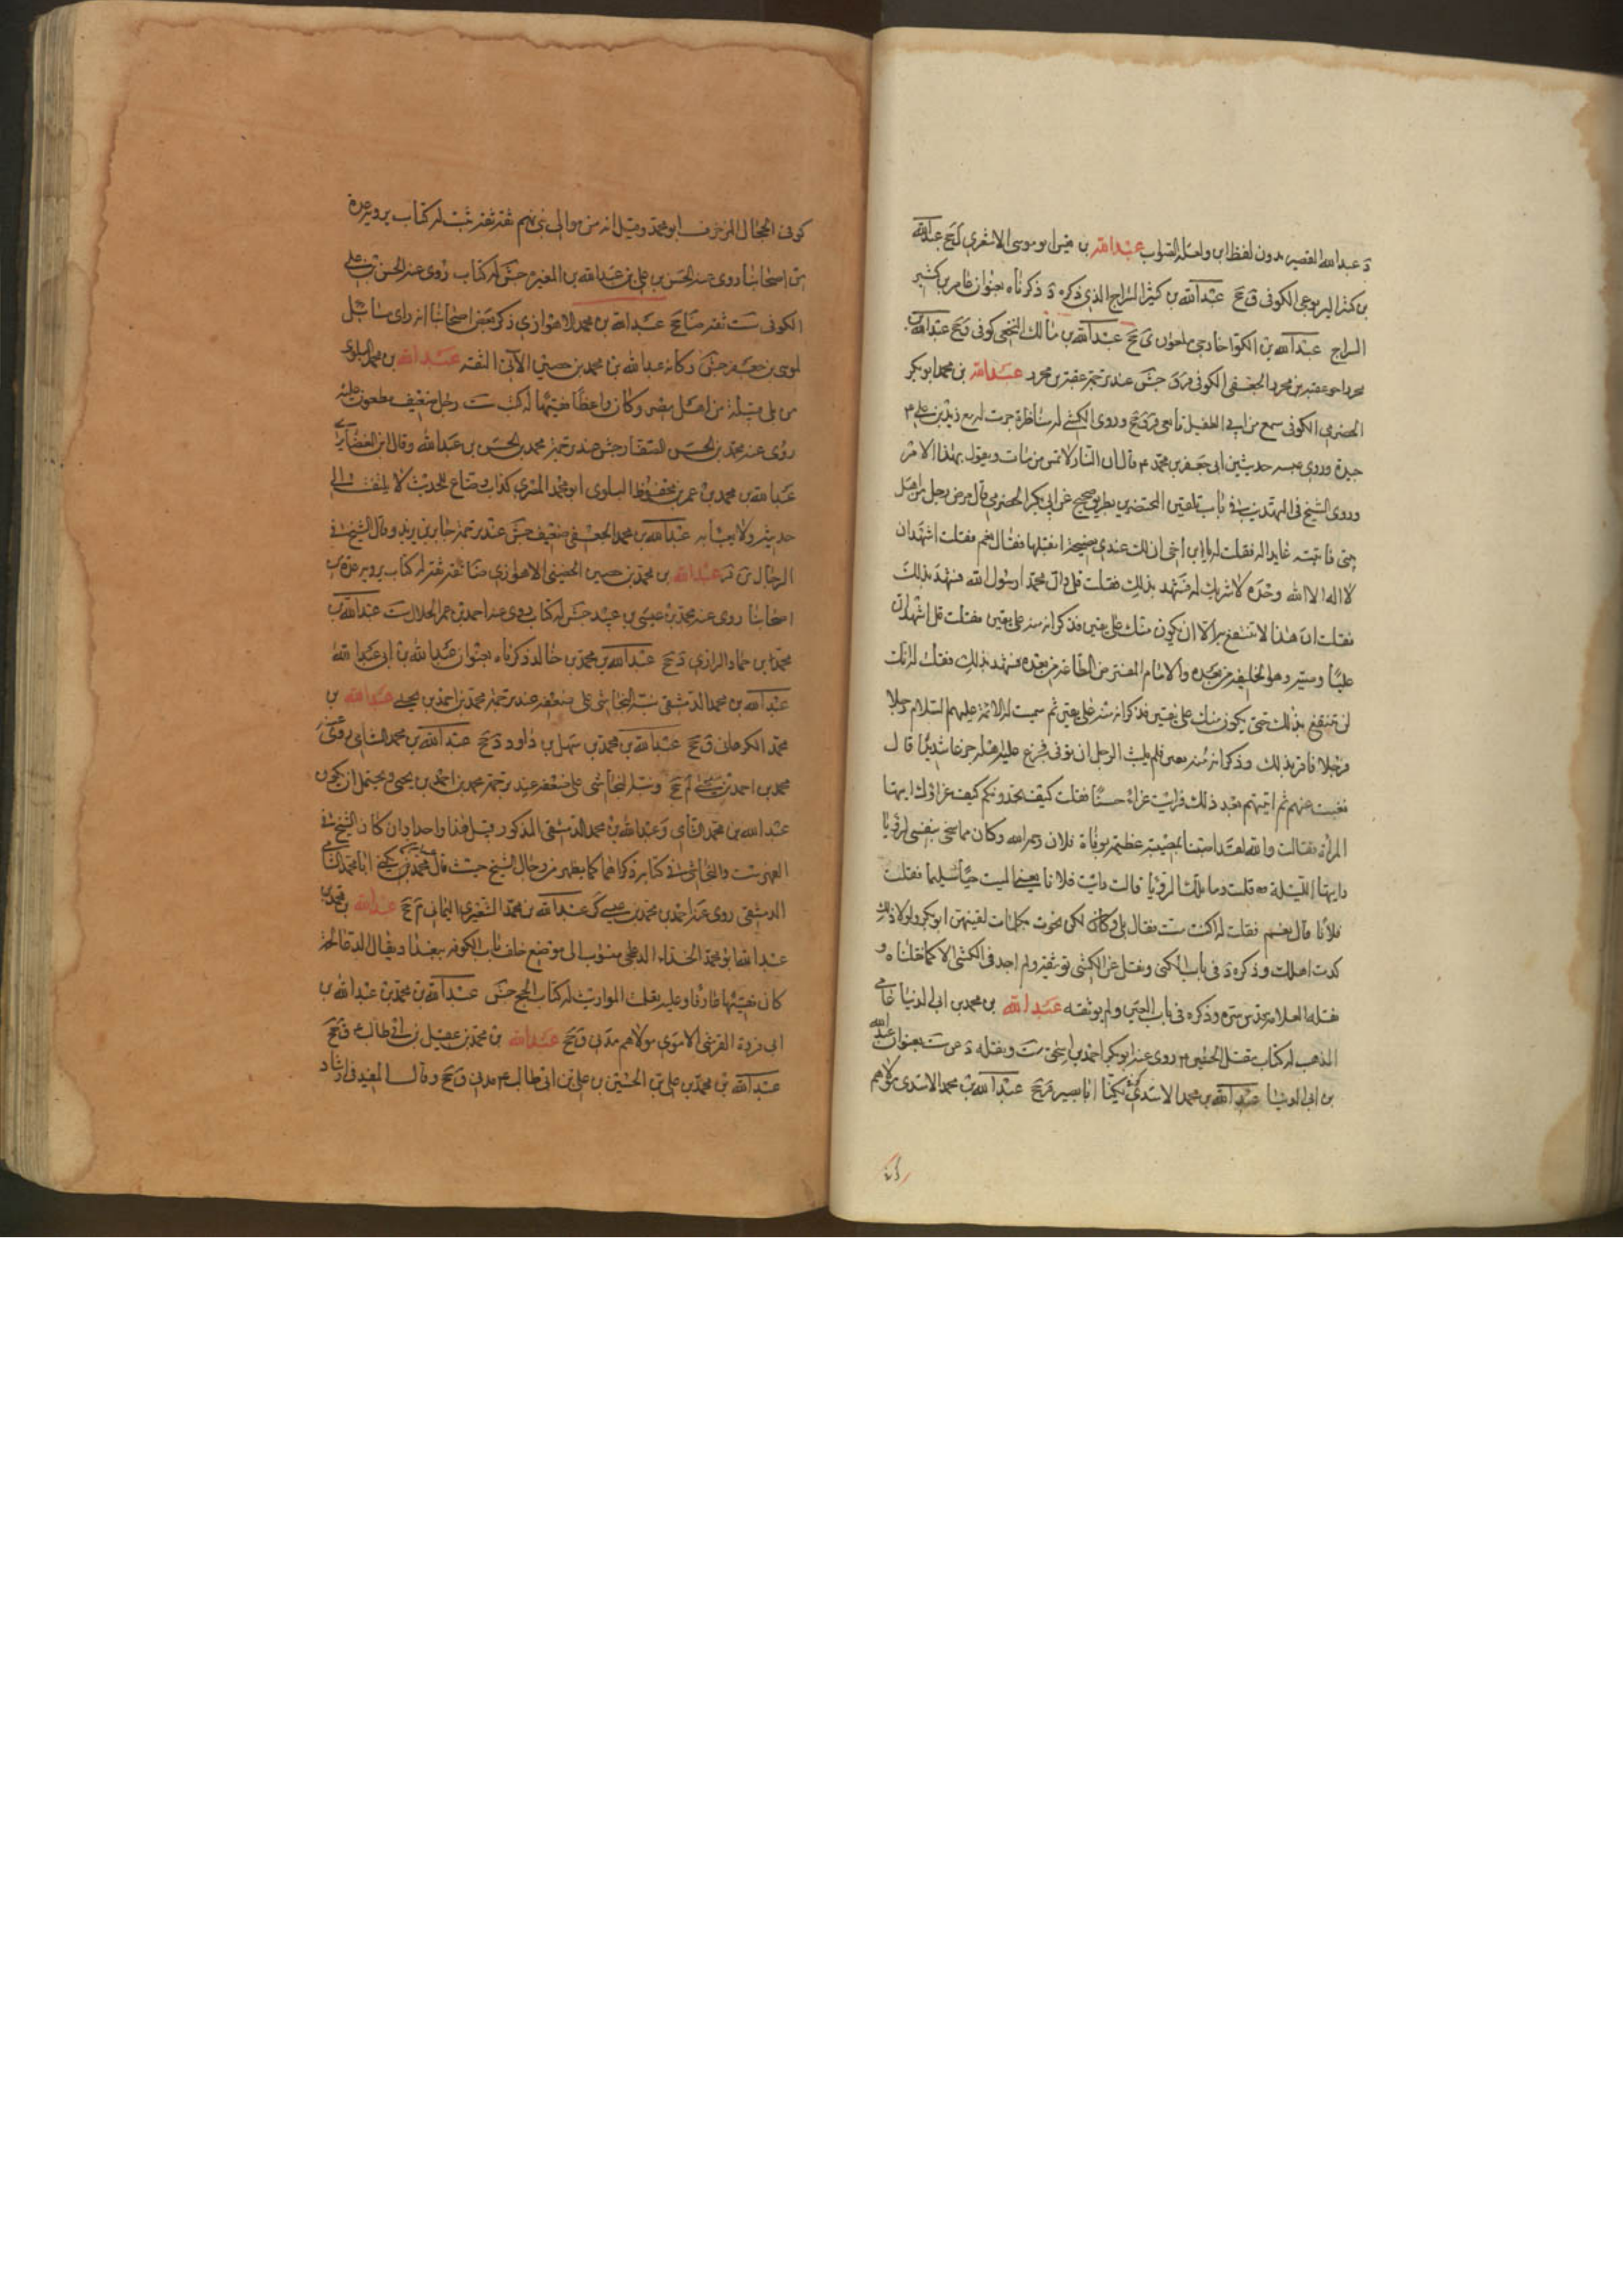 د عبدالله القصير بدون لفظ ابن ولعله الصواب عبدالله بن قيس ابو موسى الاشعري ل جخ عبدالله
بن كثير اليربوعي الكوفي ق جخ عبدالله بن كثير السراج الذي ذكره د ذكرناه بعنوان عامر بن كثير
السراج عبدالله بن الكوا خارجي ملعون ي جخ عبدالله بن مالك النخعي كوفي ق جخ عبدالله بن
محرد اخو عقبة بن محرد الجعفي الكوفي ق جش عند ترجمة عقبة بن محرد عبدالله بن محمد ابو بكر
الحضرمي الكوفي سمع من ابي الطفيل تابعي ق جخ وروى الكشي له مناظرة جرت له مع زيد بن علي م
جيدة وروى عنه حديثين ابي جعفر بن محمد م قال ان النار لا تمس من مات ويقول بهذا الامر
وروى الشيخ في التهذيب في باب تلقين المحتضرين بطريق صحيح عن ابي بكر الحضرمي قال مرض رجل من اهل
بيتي فاتيته عايدا له فقلت له يا ابن اخي ان لك عندي نصيحة اتقبلها فقال نعم فقلت اشهد ان
لا اله الا الله وحده لا شريك له فشهد بذلك فقلت قل وان محمدا رسول الله فشهد بذلك
فقلت ان هذا لا تنتفع به الا ان يكون منك على يقين فذكر انه منه على يقين فقلت قل اشهد ان
عليا وصيه وهو الخليفة من بعده والامام المفترض الطاعة من بعده فشهد بذلك فقلت له انك
لن تنتفع بذلك حتى يكون منك على يقين فذكر انه منه على يقين ثم سميت له الائمة عليهم السلام رجلا
فرجلا فاقر بذلك وذكر انه منه يقين فلم يلبث الرجل ان توفى فجزع عليه اهله جزعا شديدا قال
فغبت عنهم ثم اتيتهم بعد ذلك فرايت عزاء حسنا فقلت كيف تجدونكم كيف عزاؤك ايتها
المرأة فقالت والله لقد اصبنا بمصيبة عظيمة بوفاة فلان رحمه الله وكان مما سخى بنفسي لرؤيا
رايتها الليلة قلت وما تلك الرؤيا قالت رايت فلانا يعني الميت حيا سليما فقلت
فلانا قال نعم فقلت له اكنت مت فقال بلى ولكن نجوت بكلمات لقينهن ابو بكر ولولا ذلك
كدت اهلك وذكره د في باب الكنى ونقل عن الكشي توثيقه ولم اجد في الكشي الا كما نقلناه و
نقله العلامة قدس سره وذكره في باب العين ولم يوثقه عبدالله بن محمد بن ابي الدنيا عامي
المذهب له كتاب مقتل الحسين م روى عنه ابو بكر احمد بن اسحق ست ونقله د عن ست بعنوان عبدالله
بن ابي الدنيا عبدالله بن محمد الاسدي كوفي يكنى ابا بصير ق جخ عبدالله بن محمد الاسدي مولاهم
كوفي الحجال المزخرف ابو محمد وقيل انه من موالي بني تيم ثقة ثقة ثبت له كتاب يرويه عدة
من اصحابنا روى عنه الحسن بن علي بن عبدالله بن المغيرة جش له كتاب روى عنه الحسن بن علي
الكوفي ست ثقة ضا جخ عبدالله بن محمد الاهوازي ذكر بعض اصحابنا انه راى مسائل
لموسى بن جعفر جش وكانه عبدالله بن محمد بن حصين الآتي الثقة عبدالله بن محمد البلوي
من بلى قبيلة من اهل مصر وكان واعظا فقيها له كتب ست رجل ضعيف مطعون عليه
روى عنه محمد بن الحسن الصفار جش عند ترجمة محمد بن الحسن بن عبدالله وقال ابن الغضايري
عبدالله بن محمد بن عمر بن محفوظ البلوي ابو محمد المصري كذاب وضاع للحديث لا يلتفت الى
حديثه ولا يعبأ به عبدالله بن محمد الجعفي ضعيف جش عند ترجمة جابر بن يزيد وقال الشيخ في
الرجال ين قر عبدالله بن محمد بن حصين الحضيني الاهوازي ضا ثقة ثقة له كتاب يرويه عدة من
اصحابنا روى عنه محمد بن عيسى بن عبيد جش له كتاب روى عنه احمد بن عمر الحلال ست عبدالله بن
محمد بن حماد الرازي د جخ عبدالله بن محمد بن خالد ذكرناه بعنوان عبدالله بن ابي عبدالله
عبدالله بن محمد الدمشقي نبه النجاشي على ضعفه عند ترجمة محمد بن احمد بن يحيى عبدالله بن
محمد الكرماني ق جخ عبدالله بن محمد بن سهل بن داود د جخ عبدالله بن محمد الشامي روى عنه
محمد بن احمد بن يحيى لم جخ ونبه النجاشي على ضعفه عند ترجمة محمد بن احمد بن يحيى ويحتمل ان يكون
عبدالله بن محمد الشامي وعبدالله بن محمد الدمشقي المذكور قبيل هذا واحدا وان كان الشيخ في
الفهرست والنجاشي في كتابه ذكراهما كما يظهر من رجال الشيخ حيث قال يكنى ابا محمد الشامي
الدمشقي روى عنه احمد بن محمد بن عيسى كر عبدالله بن محمد الشعيري اليماني م جخ عبدالله بن محمد بن
عبدالله ابو محمد الحذاء الدعلجي منسوب الى موضع خلف باب الكوفة ببغداد يقال الدعالجة
كان فقيها عارفا وعليه تعلمت المواريث له كتاب الحج جش عبدالله بن محمد بن عبدالله بن
ابي فروة القرشي الاموي مولاهم مدني ق جخ عبدالله بن محمد بن عقيل بن ابي طالب م ق جخ
عبدالله بن محمد بن علي بن الحسين بن علي بن ابي طالب م مدني ق جخ وقال المفيد في ارشاد